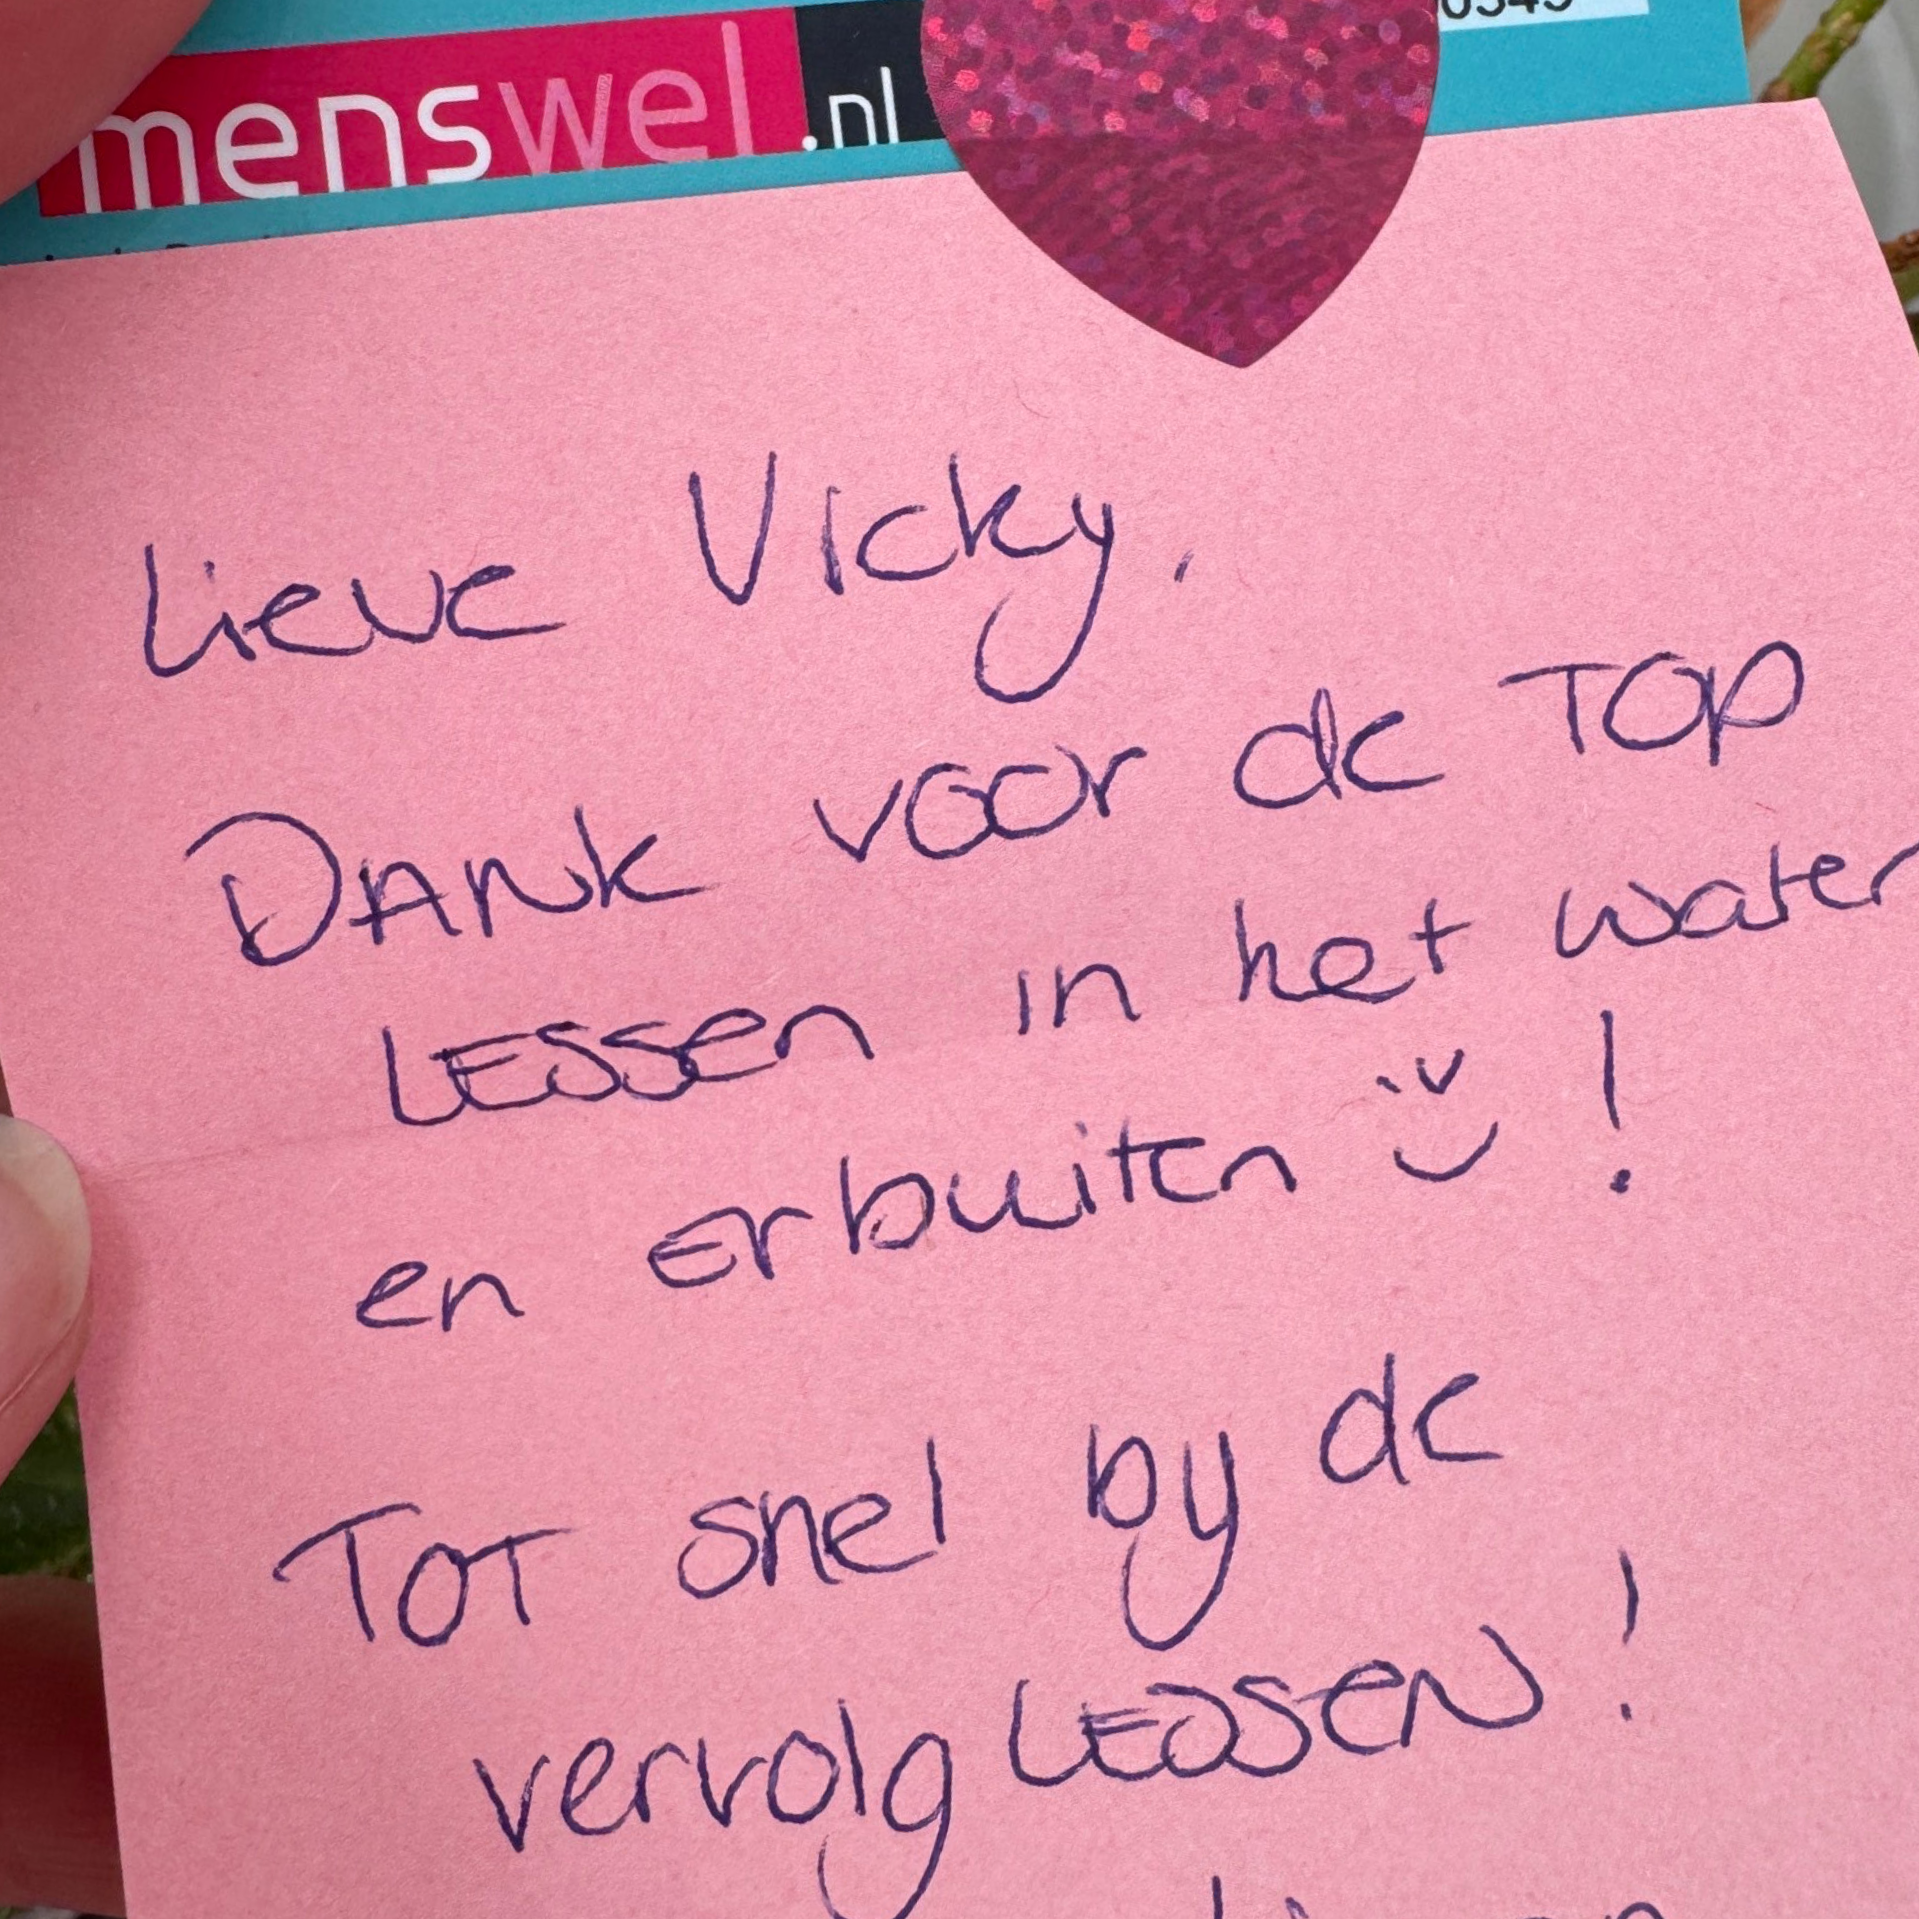 menswel.nl
Lieve Vicky,
Dank voor de TOP
LESSEN in het water
en erbuiten !
Tot snel by de
vervolg LESSEN!